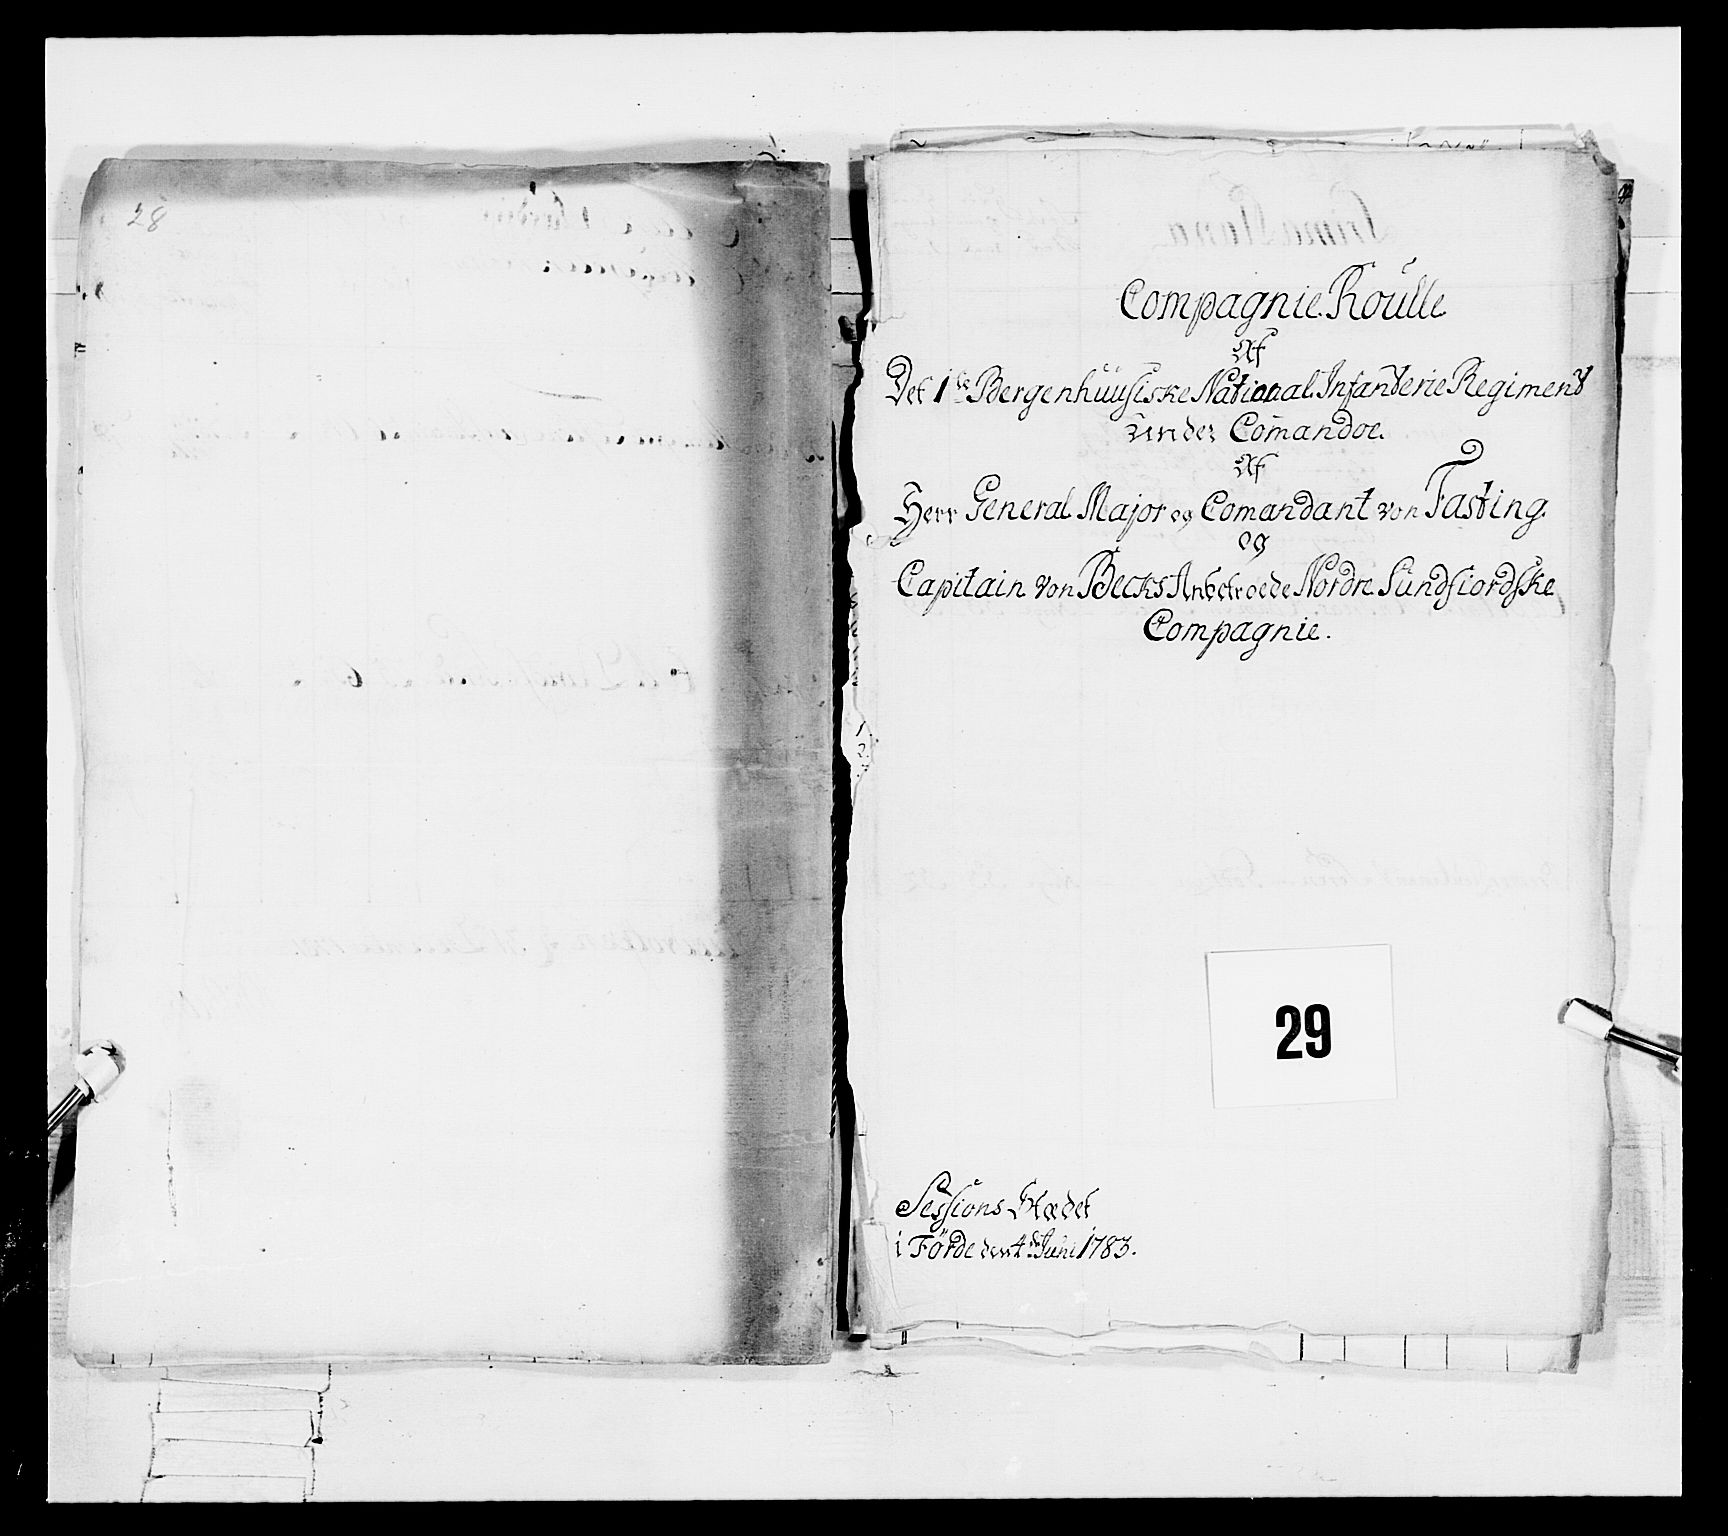 28
Compagnie Roulle
Af
Det 1ste Bergenhuusiske National Infanterie Regiment
under Comandoe
Af
Herr General Major og Comandant von Fasting
og
Capitain von Becks Anbetroede Nordre Sundfiordske
Compagnie.
29
Sessions Stædet
i Förde den 4de Juni 1783.